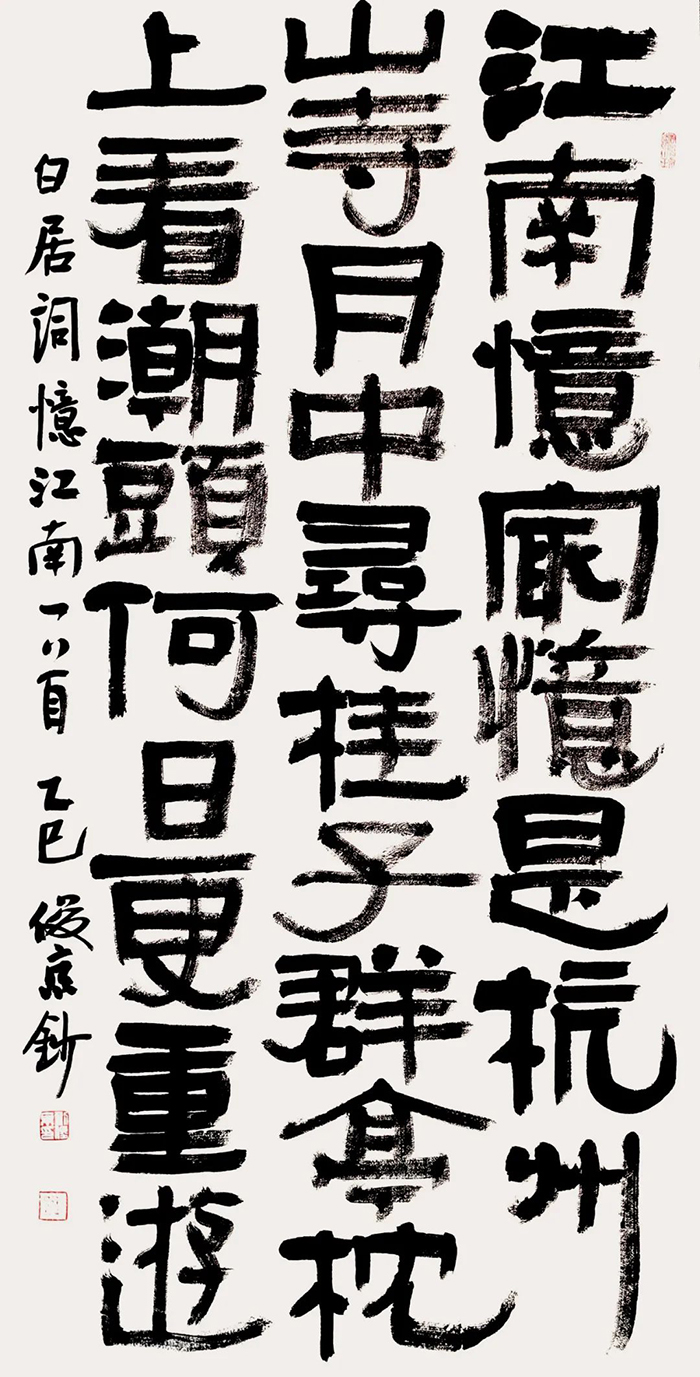 江南憶冣憶是杭州
山寺月中尋桂子群亭枕
上看潮頭何日更重遊
白居詞憶江南一首 乙巳 俊鈔